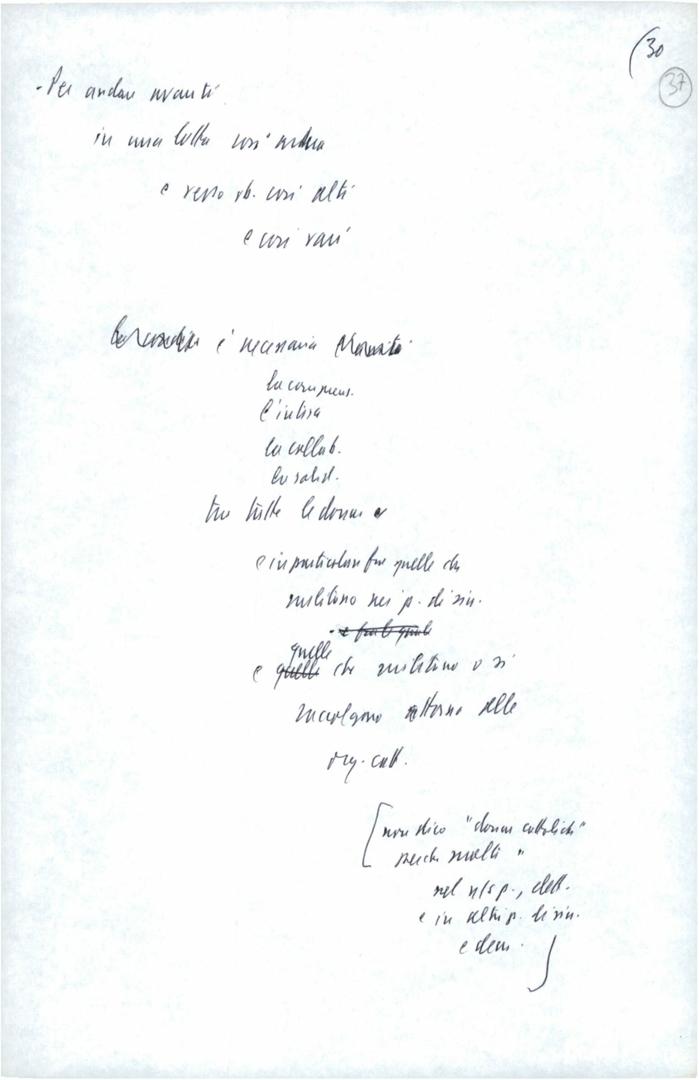 (30
37
- Per andare avanti
in una lotta così ardua
e verso ob. così alti
e così vari
è necessaria
la comprens.
l'intesa
la collab.
la solid.
tra tutte le donne e
e in particolare fra quelle che
militano nei p. di sin.
quelle
e quelle che militano o si
raccolgono attorno alle
org. catt.
[non dico "donne cattoliche"
perché molti "
nel n/s p., dett.
e in altri p. di sin.
e dem. ]